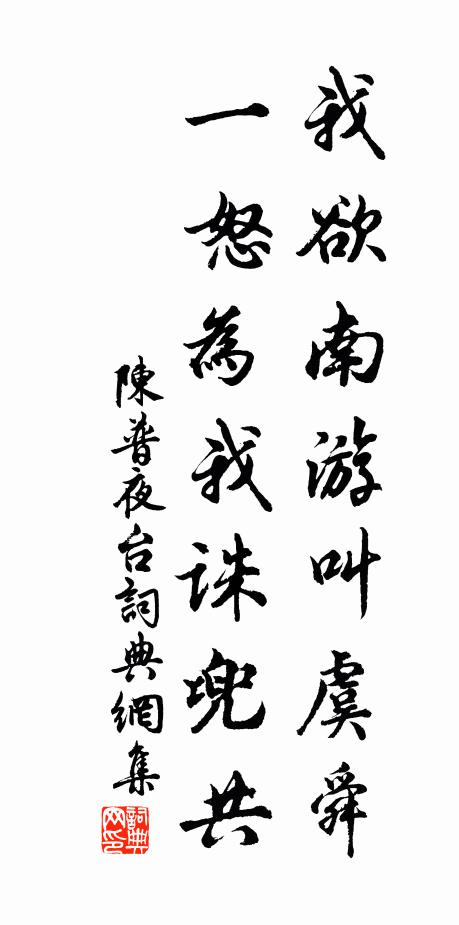 我欲南游叫虞舜
一怒為我誅兜共
陳普夜台詞典網集
詞典
网印